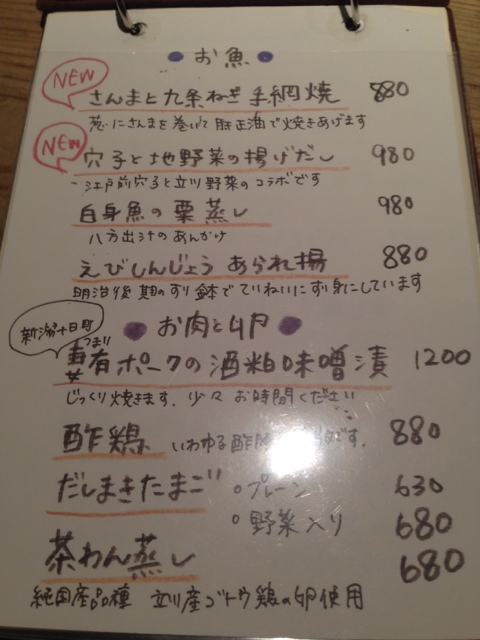 お魚
NEW
さんまと九条ねぎ 手網焼 880
葱にさんまを巻いて 醤油で焼きあげます
NEW
穴子と地野菜の揚げだし 980
江戸前穴子と立川野菜のコラボです
白身魚の栗蒸し 980
八方出汁のあんかけ
えびしんじょう あられ揚 880
明治後期のすり鉢でていねいにすり身にしています
お肉と卵
新潟十日町
つまり
妻有ポークの酒粕味噌漬 1200
じっくり焼きます。少々お時間ください
酢鶏 いわゆる酢 です。 880
だしまきたまご ○プレーン 630
○野菜入り 680
茶わん蒸し 680
純国産品種 立川産ゴトウ鶏の卵使用